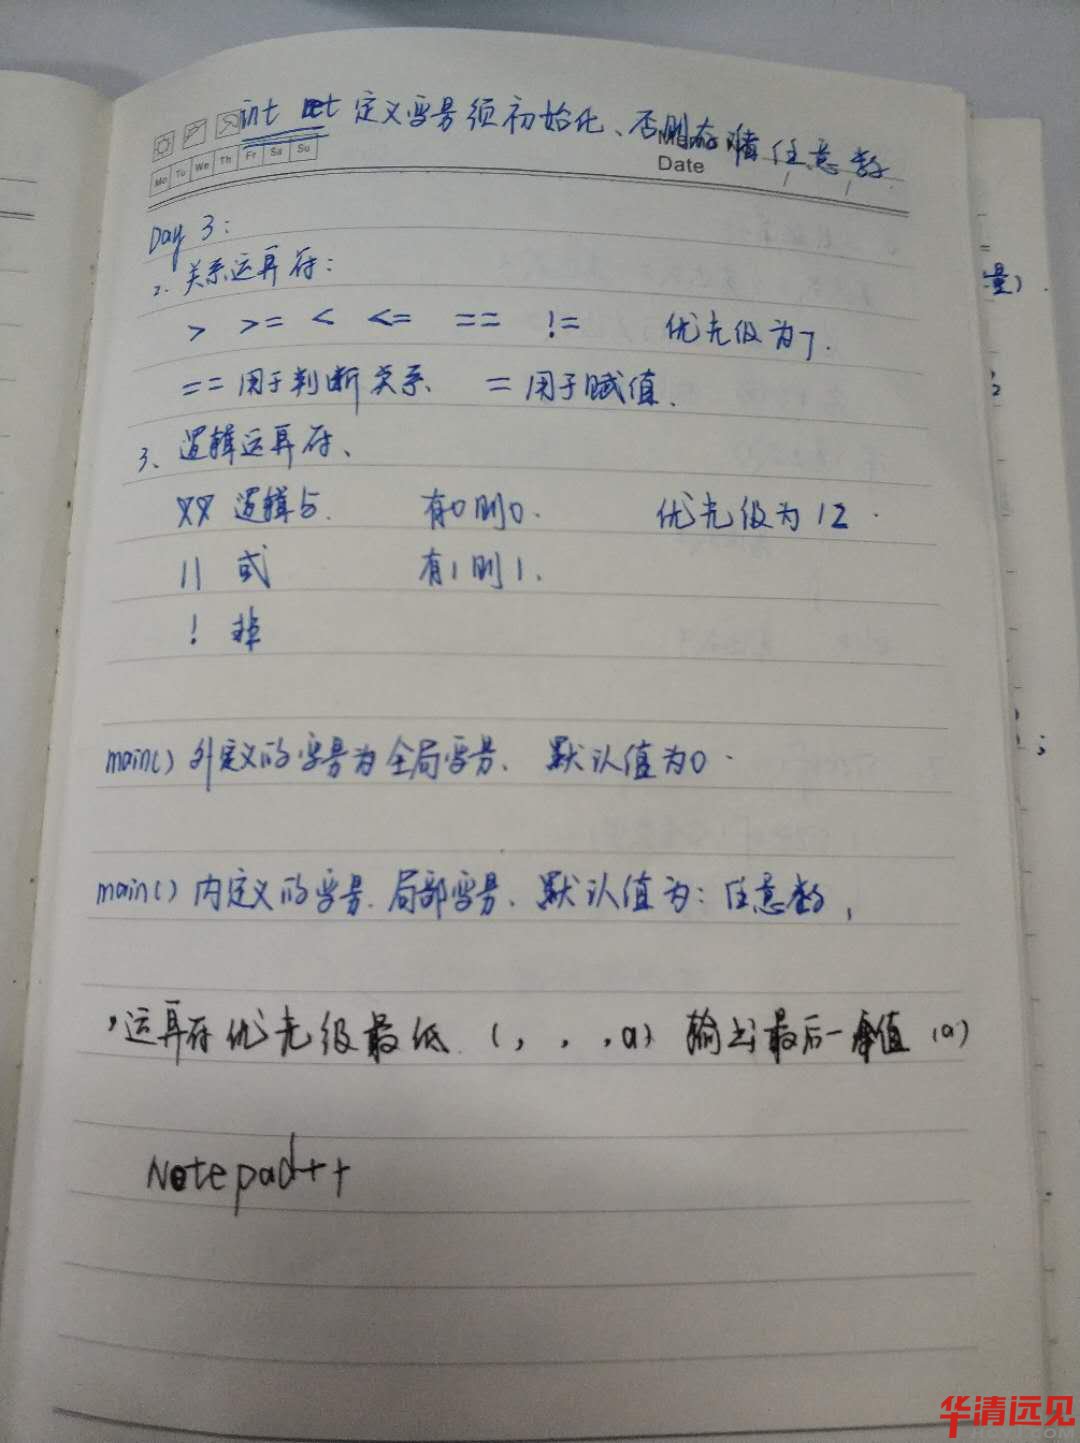 int ret 定义变量须初始化、否则存储任意数
Memo No.
Mo Tu We Th Fr Sa Su
Date / /
Day 3:
2. 关系运算符:
> >= < <= == != 优先级为7.
== 用于判断关系. = 用于赋值.
3、逻辑运算符、
&& 逻辑与. 有0则0. 优先级为12.
|| 或 有1则1.
! 非
main() 外定义的变量为全局变量、默认值为0.
main() 内定义的变量.局部变量、默认值为:任意数,
,运算符优先级最低.(, , ,a) 输出最后一个值 (a)
Notepad++
量).
华清远见
HQYJ.COM